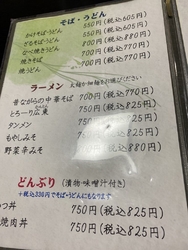 そば・うどん
かけそば・うどん 550円(税込605円)
ざるそば・うどん 550円(税込605円)
なべ焼きうどん 800円(税込880円)
焼きそば 700円(税込770円)
焼うどん 700円(税込770円)
ラーメン 太麺か細麺をお選びください
昔ながらの中華そば 700円(税込770円)
とろーり広東 750円(税込825円)
タンメン 750円(税込825円)
もやしみそ 750円(税込825円)
野菜辛みそ 800円(税込880円)
どんぶり (漬物・味噌汁付き)
+税込330円でそば・うどんにもなります
つ丼 750円(税込825円)
焼肉丼 750円(税込825円)